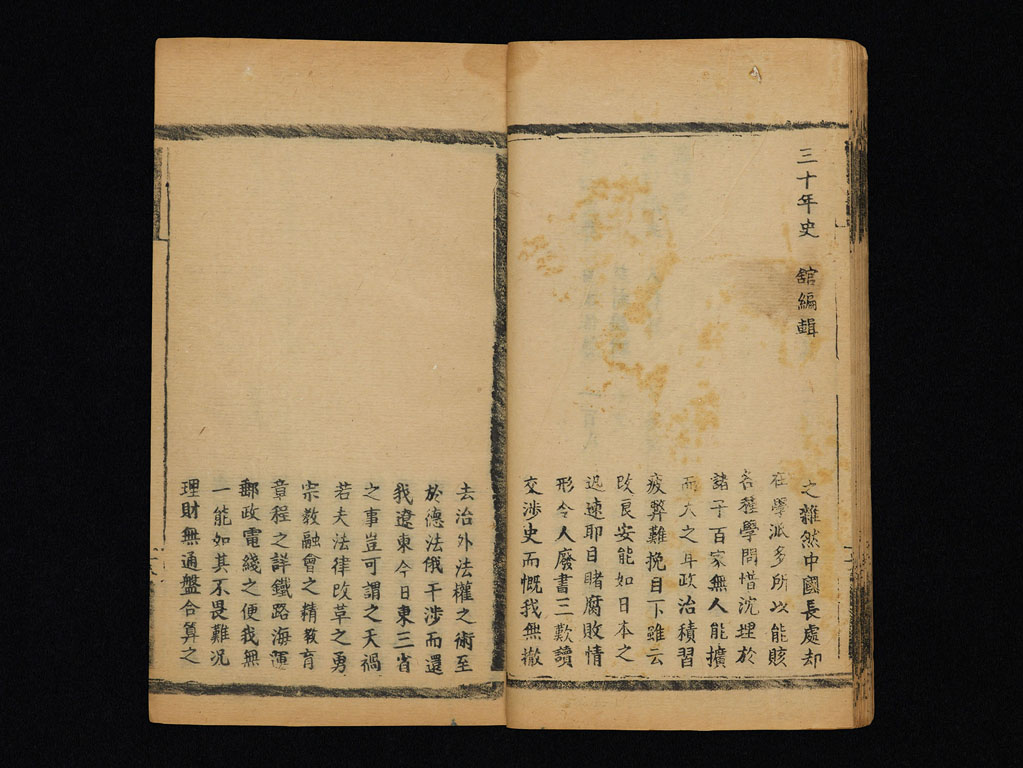 三十年史　舘編輯
之雜然中國長處却
在學派多所以能賅
各種學問惜沈埋於
諸子百家無人能擴
而大之耳政治積習
疲弊難挽目下雖云
改良安能如日本之
迅速耶日睹腐敗情
形令人廢書三歎讀
交渉史而慨我無撤
去治外法權之術至
於德法俄干涉而還
我遼東今日東三省
之事豈可謂之天禍
若夫法律改革之勇
宗教融會之精教育
章程之詳鐵路海運
郵政電綫之便我無
一能如其不畏難況
理財無通盤合算之